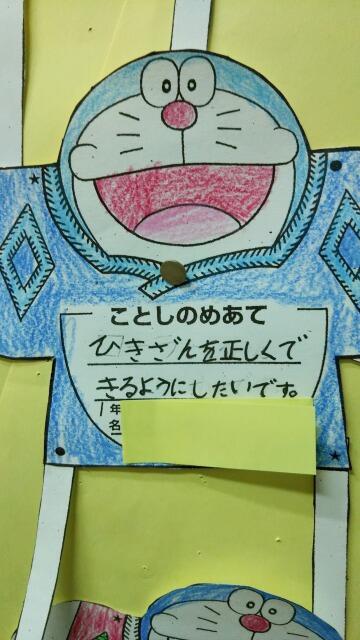 ことしのめあて
ひきざんを正しくで
きるようにしたいです。
1年
名